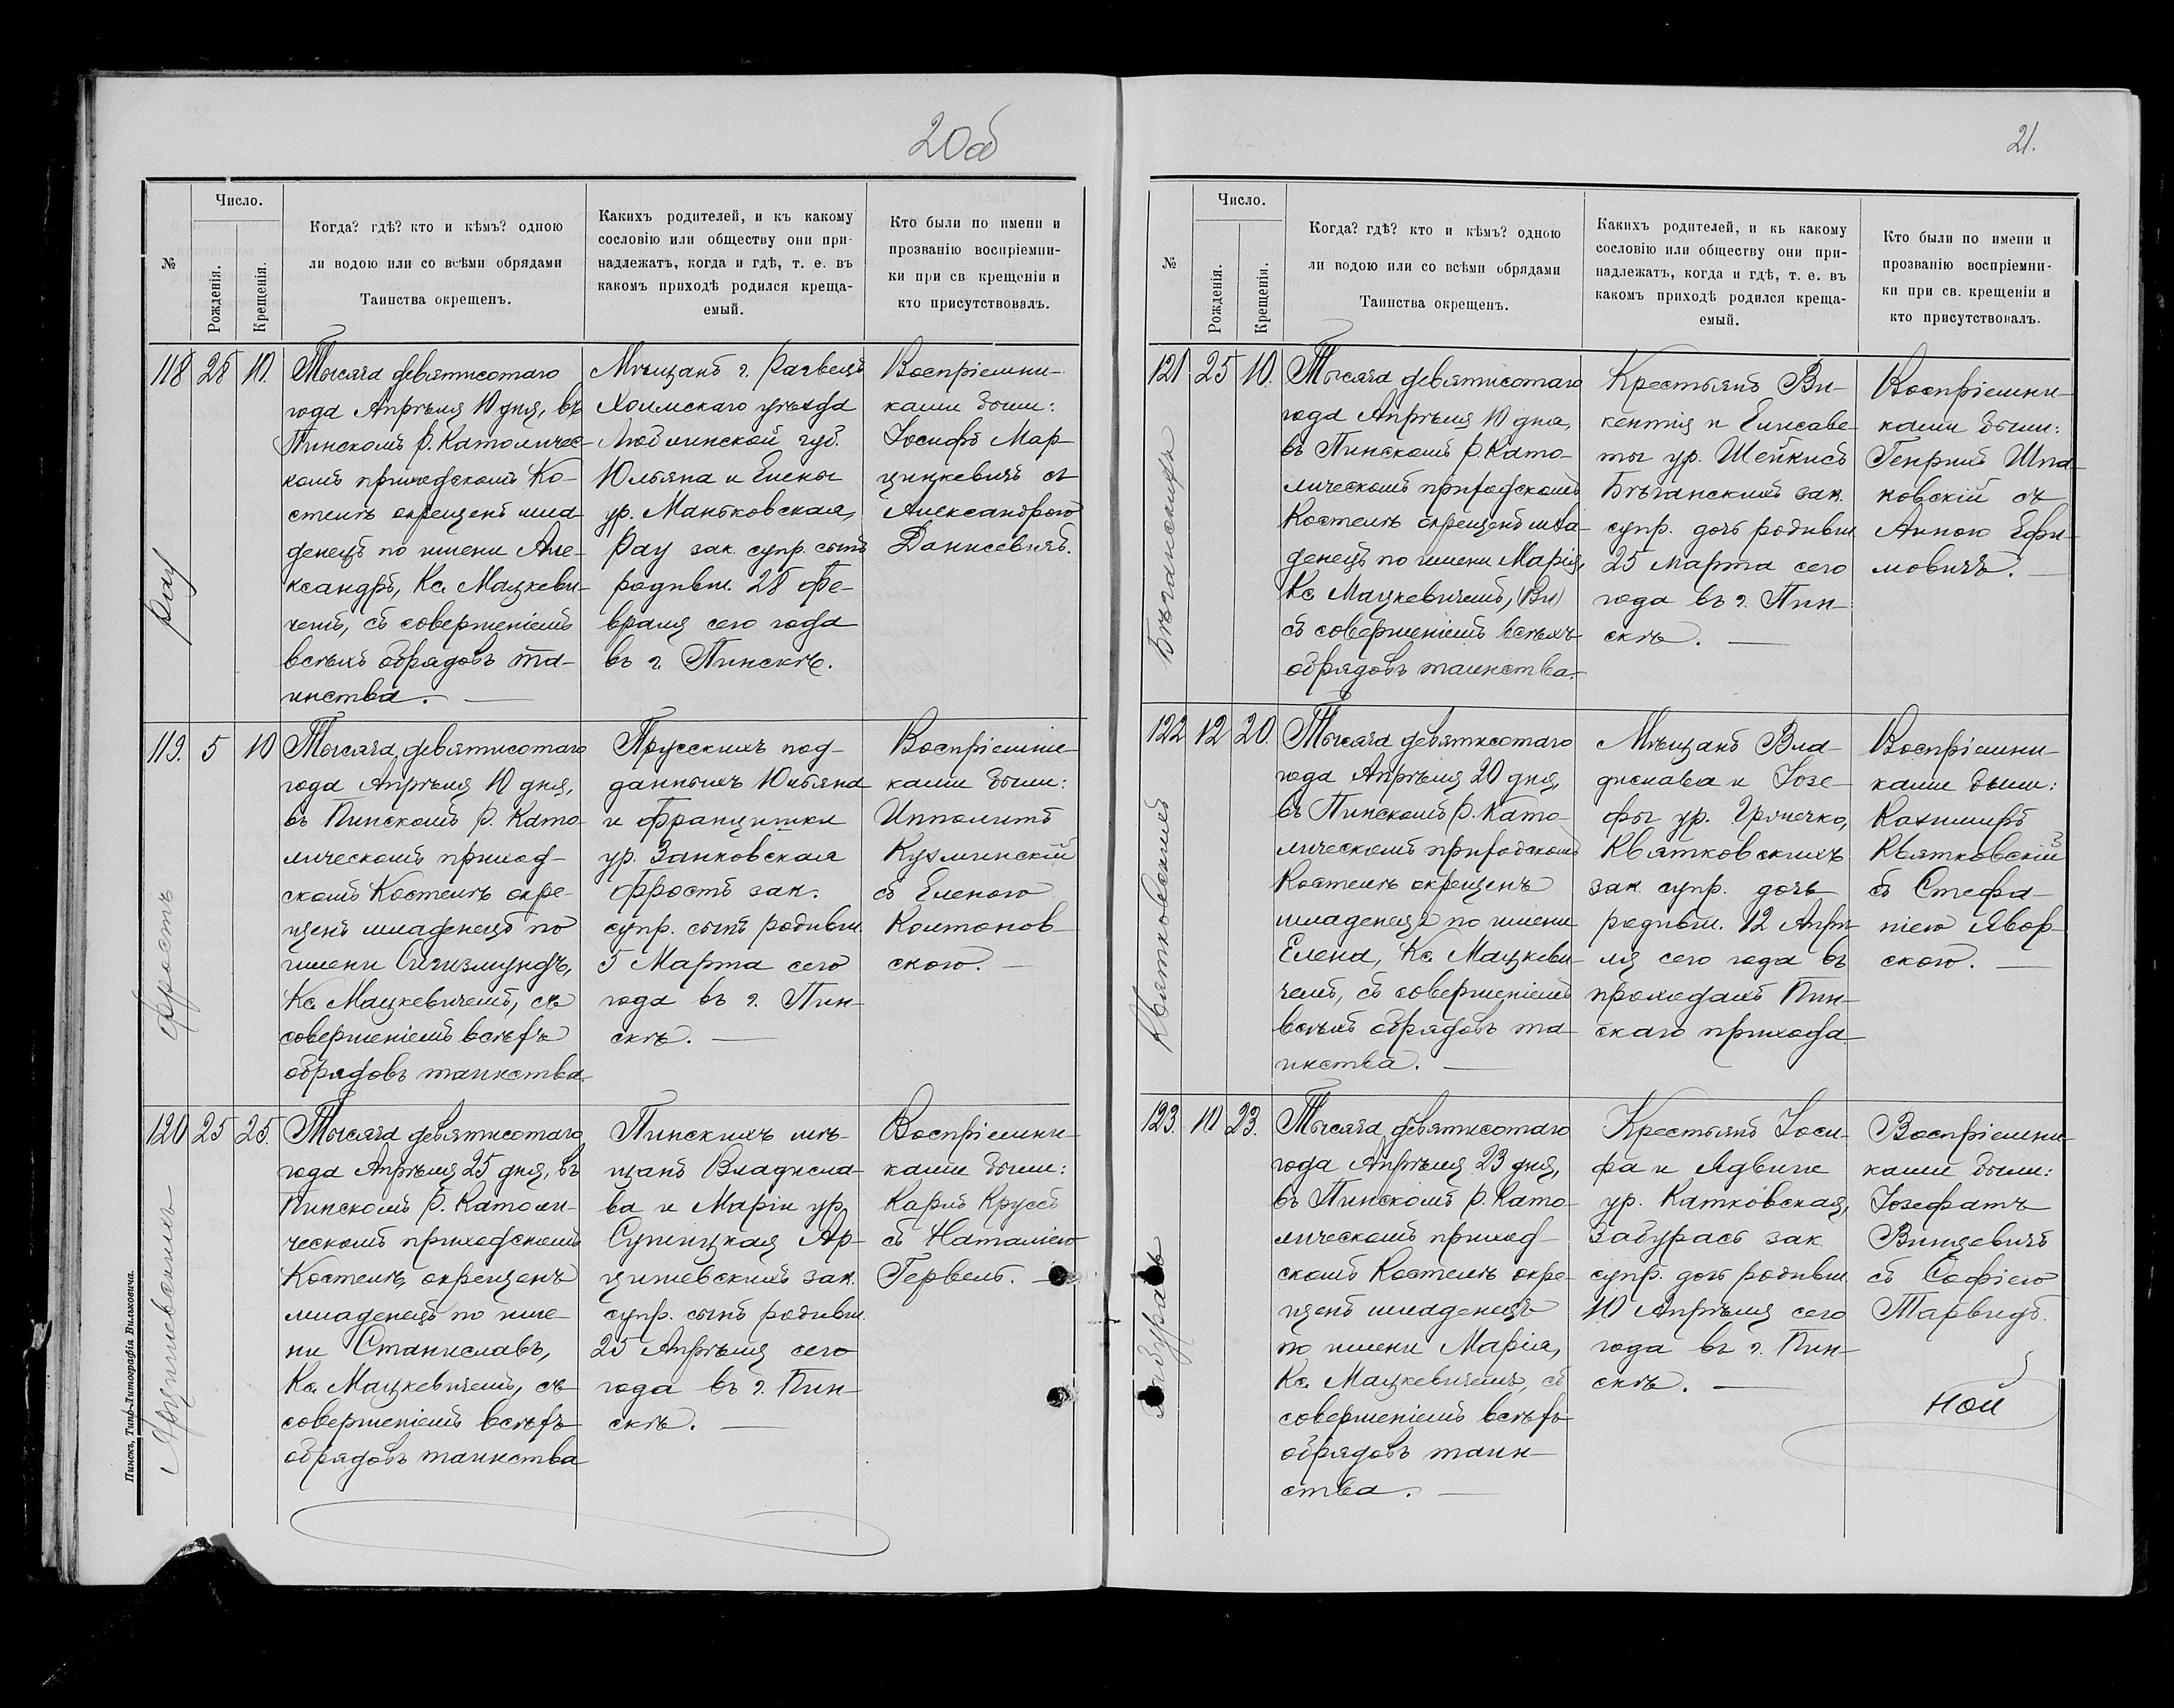 20об
№
Число.
Рожденія.
Крещенія.
Когда? гдѣ? кто и кѣмъ? одною
ли водою или со всѣми обрядами
Таинства окрещенъ.
Какихъ родителей, и къ какому
сословію или обществу они при-
надлежатъ, когда и гдѣ, т. е. въ
какомъ приходѣ родился креща-
емый.
Кто были по имени и
прозванію воспріемни-
ки при св крещеніи и
кто присутствовалъ.
118
28
10.
Рау
Тысяча девятисотаго
года Апрѣля 10 дня, въ
Пинскомъ Р. Католичес-
комъ приходскомъ Ко-
стелѣ окрещенъ мла-
денецъ по имени Але-
ксандръ, Кс. Мацкеви-
чемъ, съ совершеніемъ
всѣхъ обрядовъ та-
инства.
Мѣщанъ г.
Холмскаго уѣзда
Люблинской губ.
Юльяна и Елены
ур. Маньковская,
Рау зак. супр. сынъ
родивш. 28 Фе-
враля сего года
въ г. Пинскѣ.
Воспріемни-
ками были:
Іосифъ Мар-
цинкевичъ съ
Александрою
Данисевичъ.
119.
5
10
Фростъ
Тысяча девятисотаго
года Апрѣля 10 дня,
въ Пинскомъ Р. Като-
лическомъ приход-
скомъ Костелѣ окре-
щенъ младенецъ по
имени Сигизмундъ,
Кс. Мацкевичемъ, съ
совершеніемъ всѣхъ
обрядовъ таинства.
Прусскихъ под-
данныхъ Юльяна
и Францишки
ур. Занковская
Фростъ зак.
супр. сынъ родивш.
5 Марта сего
года въ г. Пин-
скѣ.
Воспріемни-
ками были:
Ипполитъ
Кузминскій
съ Еленою
Колтонов-
скою.
120
25
25.
Тысяча девятисотаго
года Апрѣля 25 дня, въ
Пинскомъ Р. Католи-
ческомъ приходскомъ
Костелѣ, окрещенъ
младенецъ по име-
ни Станиславъ,
Кс. Мацкевичемъ, съ
совершеніемъ всѣхъ
обрядовъ таинства
Пинскихъ мѣ-
щанъ Владисла-
ва и Маріи ур.
Ар-
цишевскихъ зак.
супр. сынъ родивш.
25 Апрѣля сего
года въ г. Пин-
скѣ.
Воспріемни-
ками были:
Карлъ Круссъ
съ Наталіею
Гервель.
Арцишевскихъ
Пинскъ, Типо-Литографія Вильковича.
21.
№
Число.
Рожденія.
Крещенія.
Когда? гдѣ? кто и кѣмъ? одною
ли водою или со всѣми обрядами
Таинства окрещенъ.
Какихъ родителей, и къ какому
сословію или обществу они при-
надлежатъ, когда и гдѣ, т. е. въ
какомъ приходѣ родился креща-
емый.
Кто были по имени и
прозванію воспріемни-
ки при св. крещеніи и
кто присутствовалъ.
121
25
10.
Бѣганскихъ
Тысяча девятисотаго
года Апрѣля 10 дня,
въ Пинскомъ Р. Като-
лическомъ приходскомъ
Костелѣ окрещенъ мла-
денецъ по имени Марія,
Кс. Мацкевичемъ, (Ви)
съ совершеніемъ всѣхъ
обрядовъ таинства.
Крестьянъ Ви-
кентія и Елисаве-
ты ур. Шейкисъ
Бѣганскихъ зак.
супр. дочь родивш.
25 Марта сего
года въ г. Пин-
скѣ.
Воспріемни-
ками были:
Генрихъ Шпа-
ковскій съ
Анною Ефи-
мовичъ.
122
12
20.
Квятковскихъ
Тысяча девятисотаго
года Апрѣля 20 дня,
въ Пинскомъ Р. Като-
лическомъ приходскомъ
Костелѣ окрещенъ
младенецъ по имени
Елена, Кс. Мацкеви-
чемъ, съ совершеніемъ
всѣхъ обрядовъ та-
инства.
Мѣщанъ Вла-
дислава и Юзе-
фы ур.
Квятковскихъ
зак. супр. дочь
родивш. 12 Апрѣ-
ля сего года въ
Пин-
скаго прихода.
Воспріемни-
ками были:
Казимиръ
Квятковскій
съ Стефа-
ніею Явор-
скою.
123.
10
23.
Забурась
Тысяча девятисотаго
года Апрѣля 23 дня,
въ Пинскомъ Р. Като-
лическомъ приход-
скомъ Костелѣ окре-
щенъ младенецъ
по имени Марія,
Кс. Мацкевичемъ, съ
совершеніемъ всѣхъ
обрядовъ таин-
ства.
Крестьянъ Іоси-
фа и Ядвиги
ур. Катковская,
Забурась зак.
супр. дочь родивш.
10 Апрѣля сего
года въ г. Пин-
скѣ.
Воспріемни-
ками были:
Іозефатъ
Винцевичъ
съ Софіею
Тарвидъ.
ной